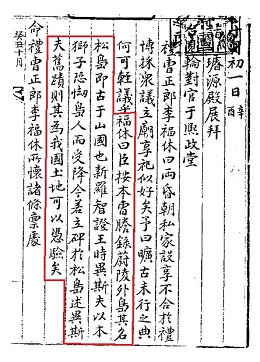 初一日辛酉
璿源殿展拜
輪對官于熙政堂
禮曹正郎李福休曰兩昏朝私家設享不合於禮
博採衆議立廟享祀似好矣予曰曠古未行之典
何可輕議乎福休曰臣按本曹謄錄蔚陵外島其名
松島即古于山國也新羅智證王時異斯夫以木
獅子恐㤼島人而受降今若立碑於松島述異斯
夫舊蹟則其爲我國土地可以憑驗矣
命禮曹正郎李福休所懷諸條稟處
癸丑十月